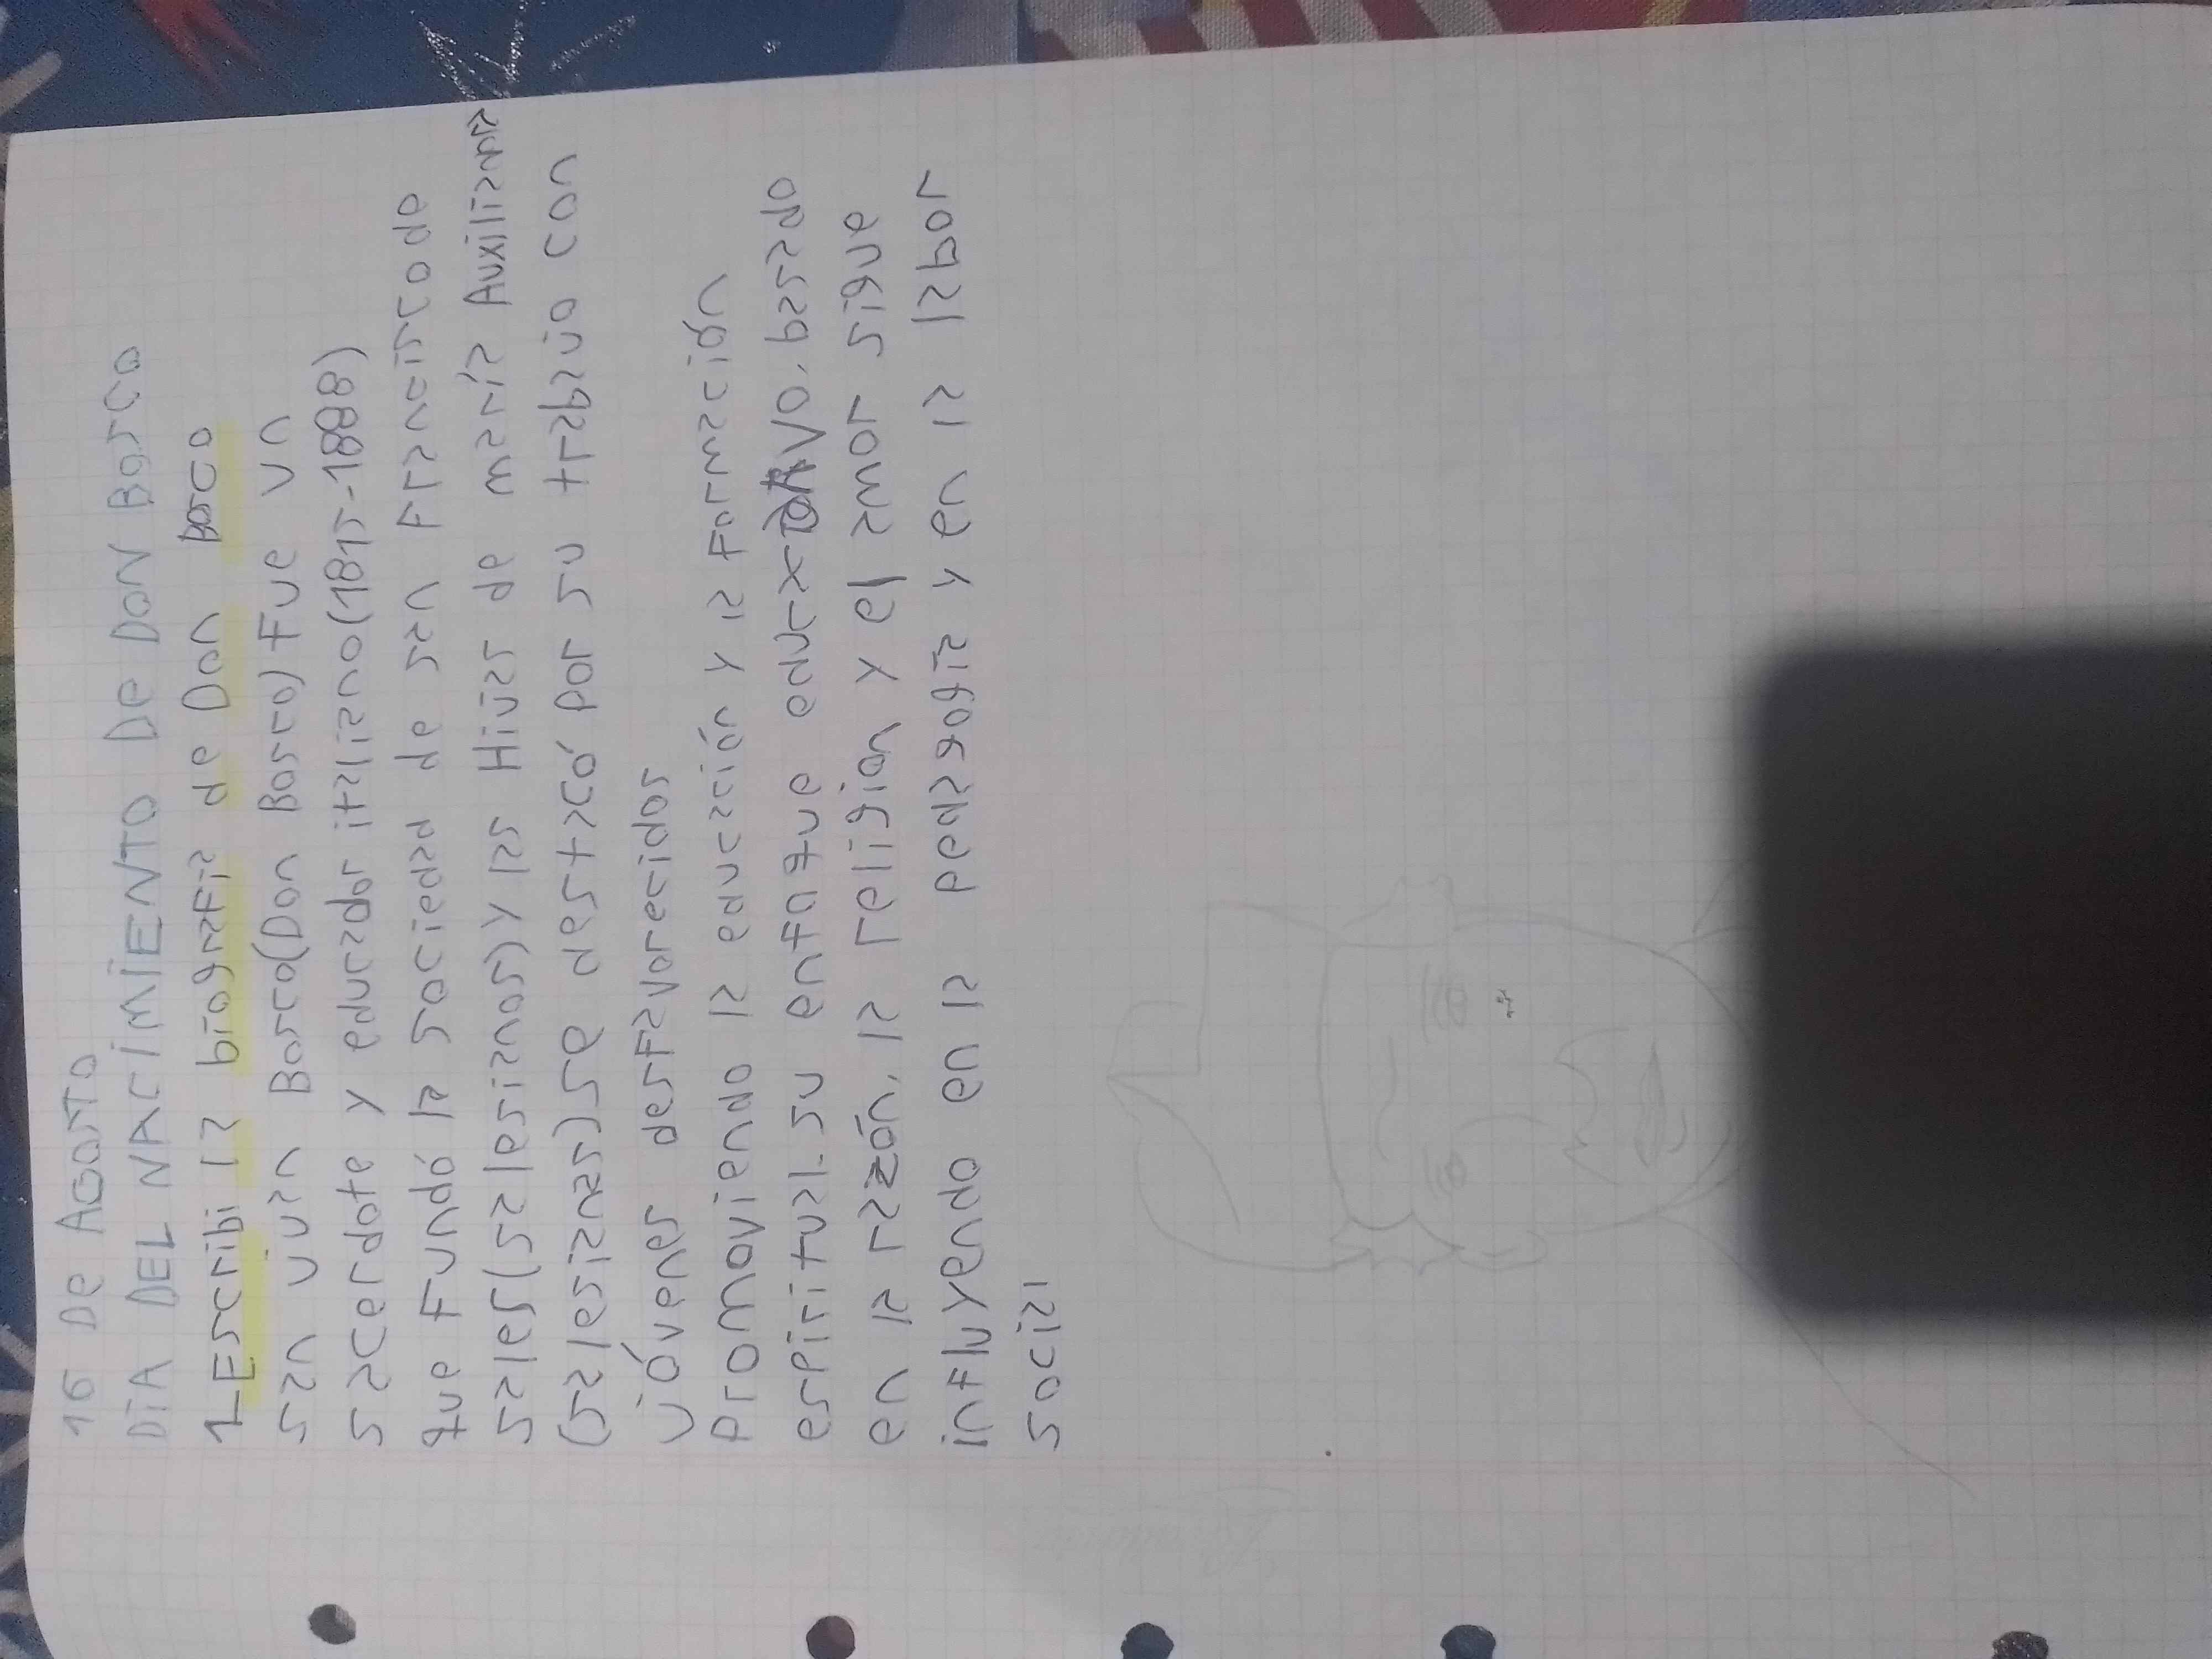 16 De AGOSTO
DÍA DEL NACÍMÍENTO DE DON BOSCO
1-Escribi la biografia de Don Bosco
san juan Bosco(Don Bosco) Fue un
sacerdote y educador italiano(1815-1888)
que Fundó la sociedad de san Francisco de
sales(salesianos) y las Hijas de maría Auxiliadora
(salesianas) se destacó por su trabajo con
jóvenes desfavorecidos
Promoviendo la educación y la Formación
espiritual. su enfoque educativo, basado
en la razón, la religion y el amor sigue
influyendo en la pedagogía y en la labor
social